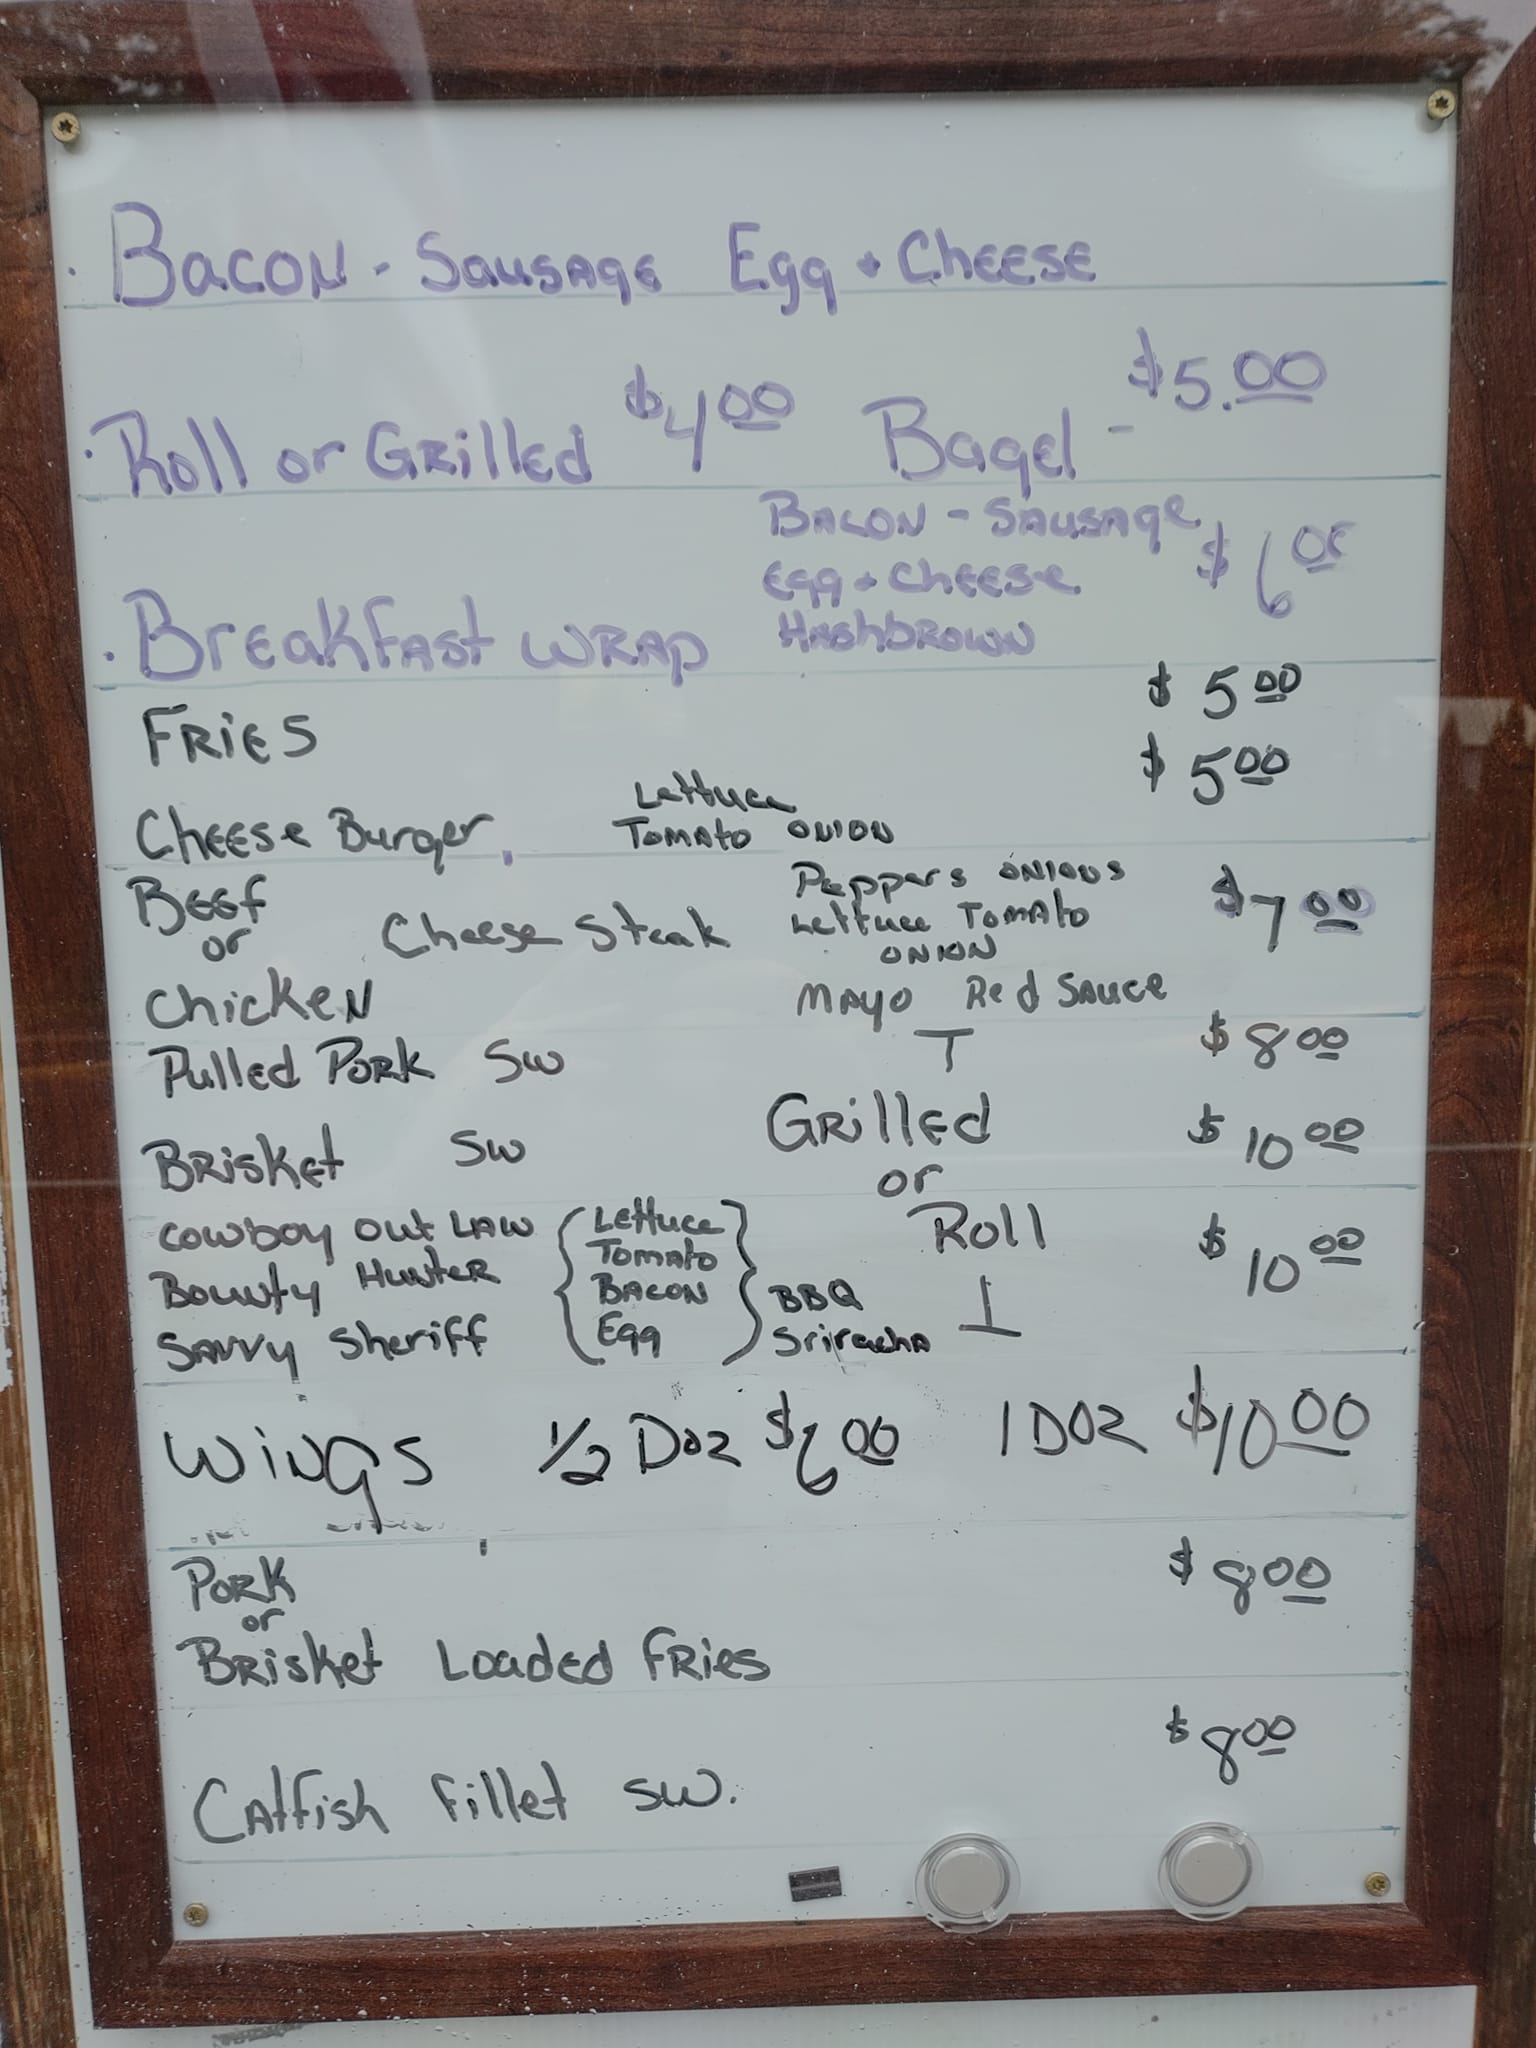 · Bacon - Sausage Egg + Cheese
· Roll or Grilled $4.00 Bagel - $5.00
· Breakfast Wrap Bacon - Sausage Egg + Cheese Hashbrown $6.00
Fries $5.00
Cheese Burger Lettuce Tomato Onion $5.00
Beef or Chicken Cheese Steak $7.00
Peppers Onions
Lettuce Tomato
Onion
Mayo Red Sauce
Pulled Pork SW $8.00
Brisket SW $10.00
Grilled
or
Roll
Cowboy Out Law
Bounty Hunter
Savvy Sheriff
{Lettuce
Tomato
Bacon
Egg}
BBQ
Sriracha
$10.00
Wings 1/2 Doz $6.00 1 Doz $10.00
Pork
or
Brisket Loaded Fries $8.00
Catfish Fillet SW. $8.00